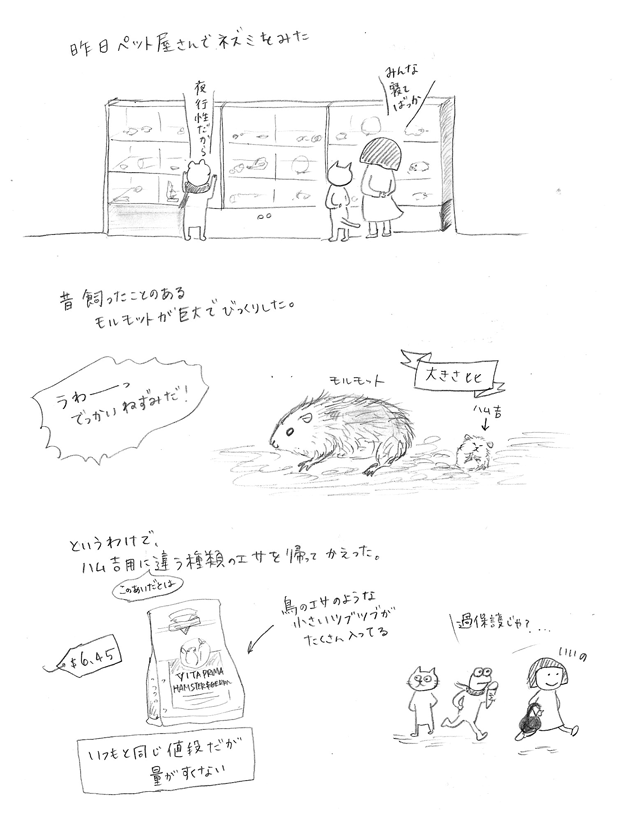 昨日ペット屋さんでネズミをみた
みんな
寝て
ばっか
夜行性だから
昔飼ったことのある
モルモットが巨大でびっくりした。
うわーーっ
でっかいねずみだ!
モルモット
大きさ比
ハム吉
というわけで、
ハム吉用に違う種類のエサを帰ってかえった。
このあいだとは
鳥のエサのような
小さいツブツブが
たくさん入ってる
$6.45
VITAPRIMA
いつもと同じ値段だが
量がすくない
過保護じゃ?...
いいの